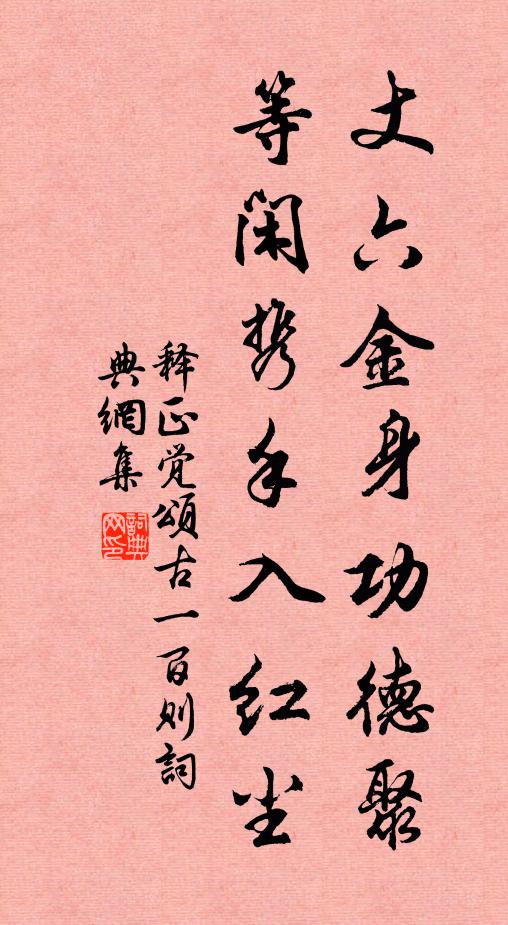 丈六金身功德聚
等闲携手入红尘
释正觉颂古一百则詞
典網集
詞典网印